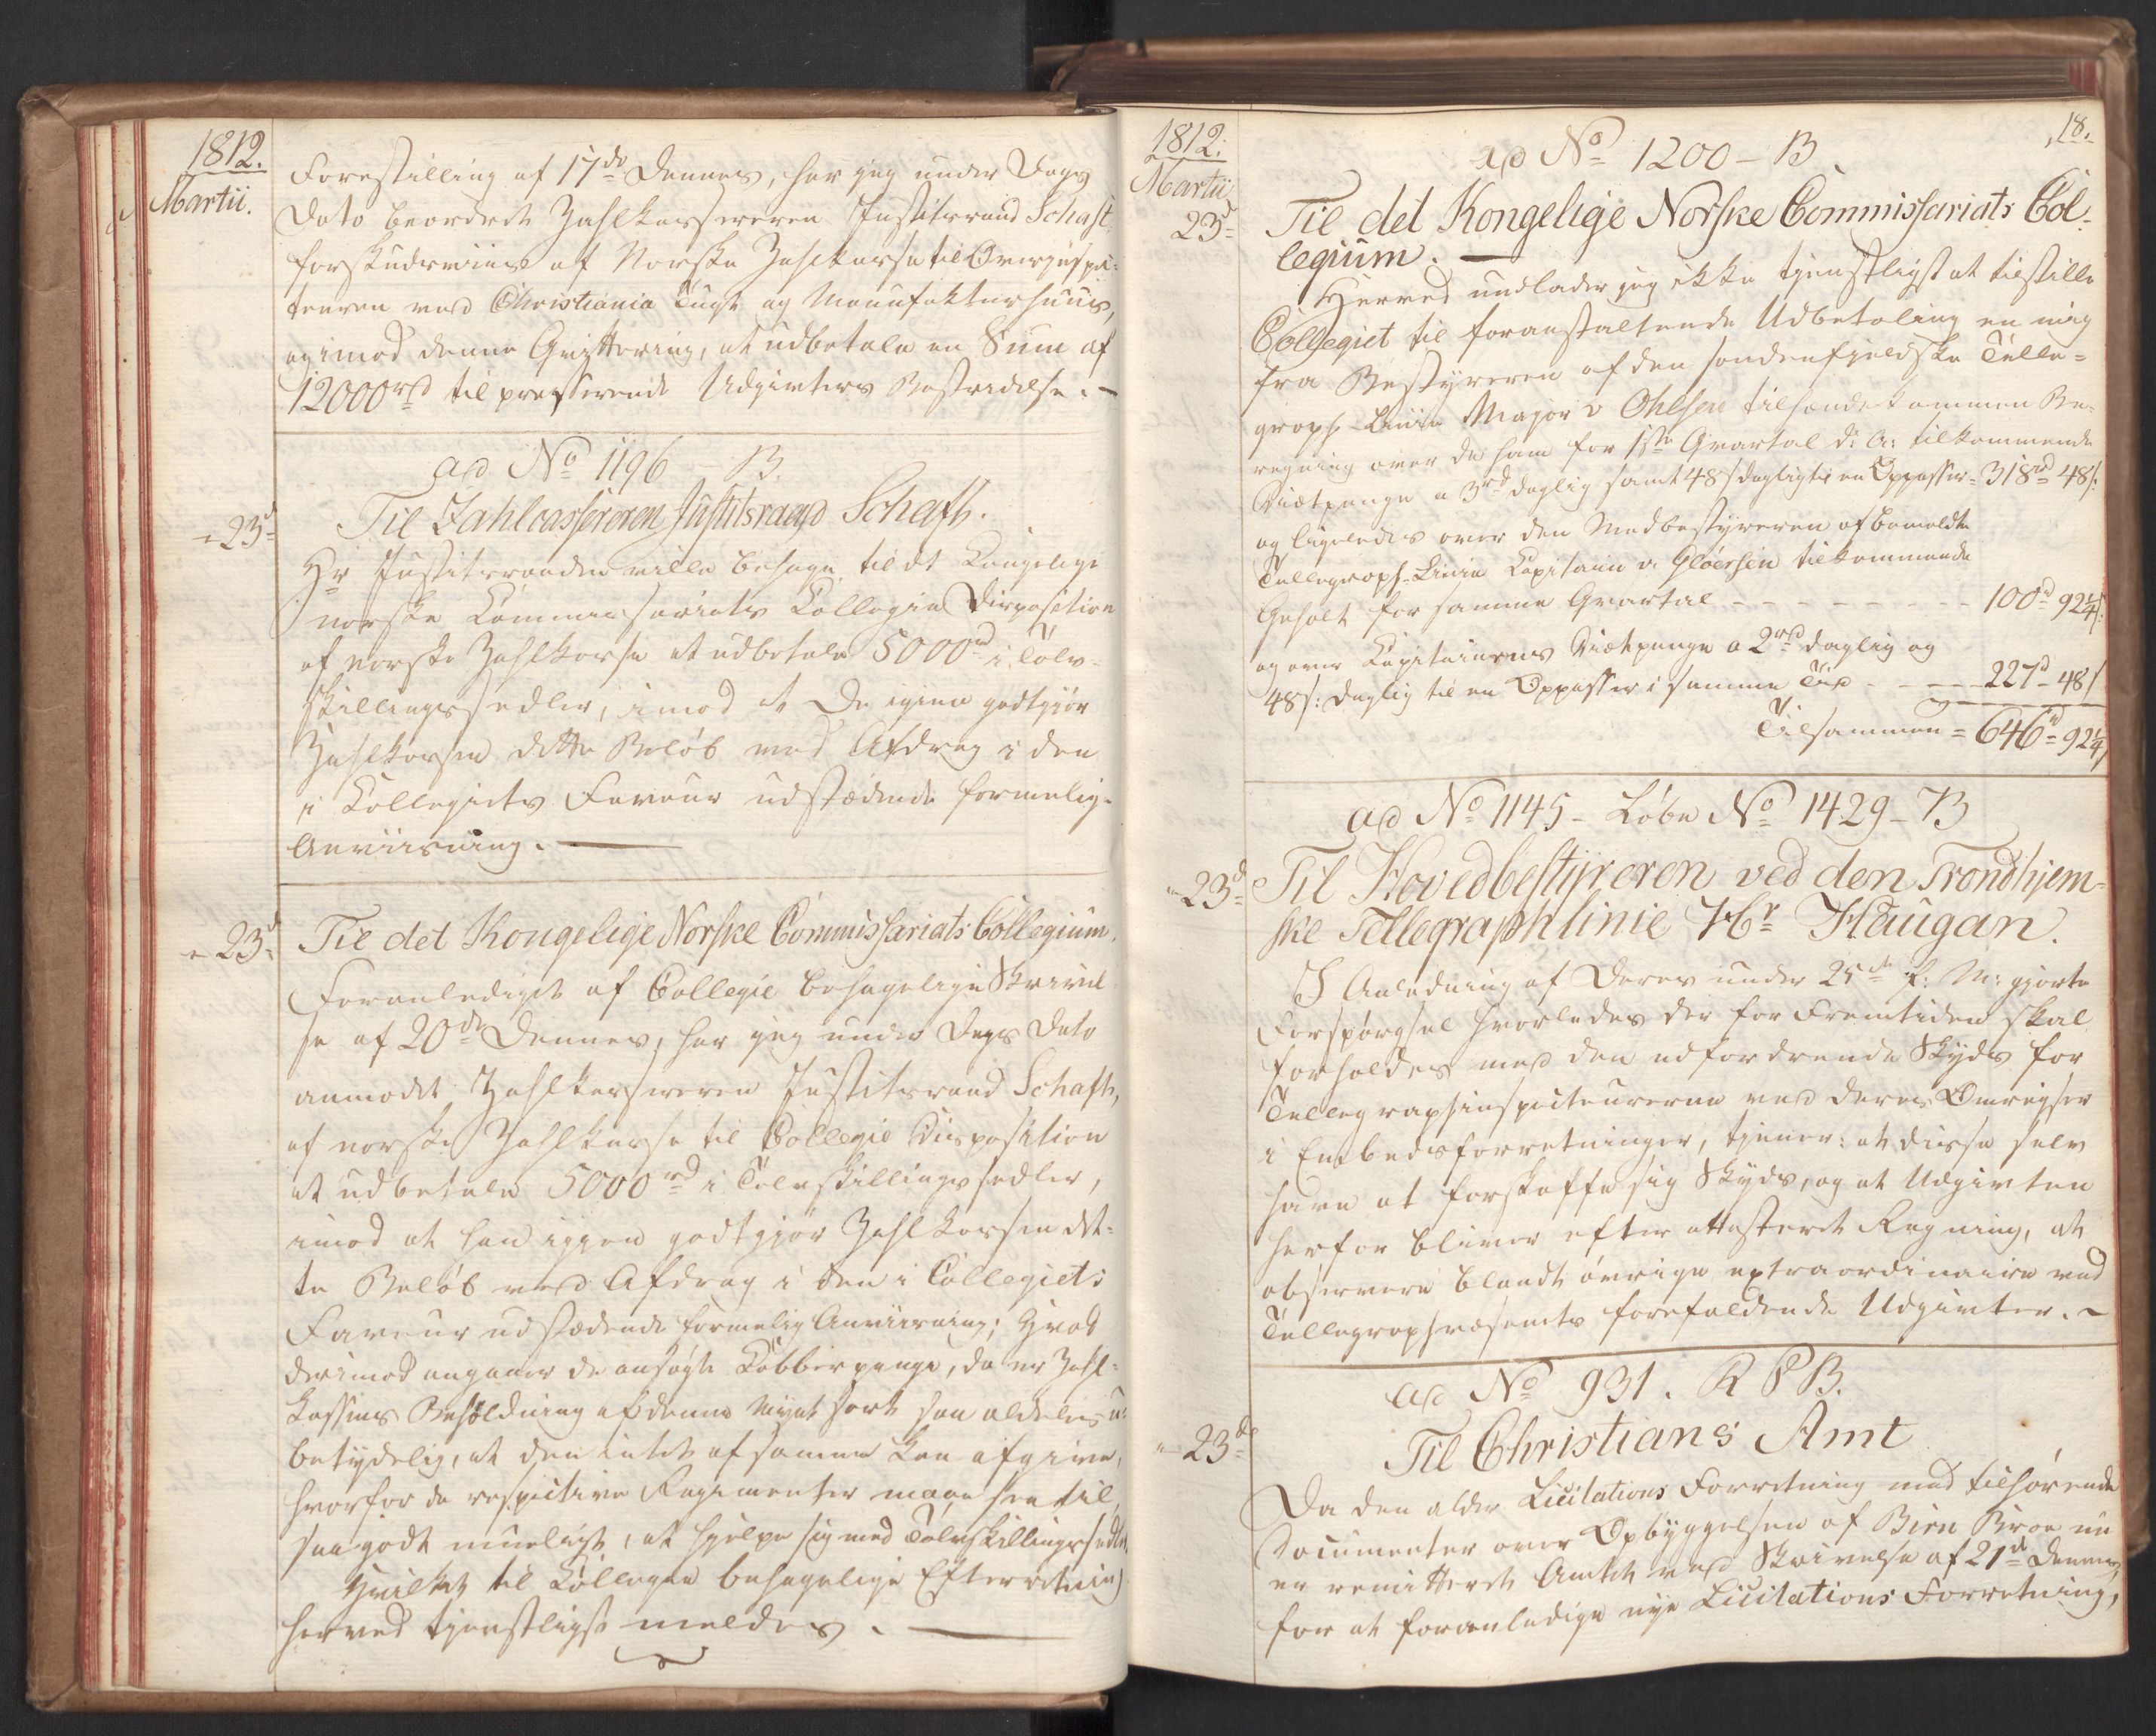 1812.
Martii.
Forestilling af 17de Dennes, har jeg under Dags
Dato beordret Zahlkassereren Justitsraad Schaft
forskudsviis af Norske Zahlkasse til Overinspec-
teuren ved Christiania Tugt og Manufakturhuus,
agimod denne Qvittering, at udbetale en Sum af
12000rd til presserende Udgivters Bestridelse. -
ad No 1196 - B.
- 23d
Til Zahlcassereren Justitsraad Schafth.
Hr Justitsraaden ville behage til det Kongelige
norske Commissariats Collegies Disposition
af norske Zahlkasse at udbetale 5000rd i Tolv-
skillingssedler, imod at De igien godtgjør
Zahlkassen dette Beløb ved Afdrag i den
i Collegiets Faveur udstædende formelig
Anviisning. -
- 23d
Til det Kongelige Norske Commissariats Collegium.
Foranlediget af Collegie behagelige Skrivel
se af 20de Dennes, har jeg under Dags Dato
anmodet Zahlkassereren Justitsraad Schafth,
af norske Zahlkasse til Collegie Disposition
at udbetale 5000rd i Tolvskillingssedler,
imod at han igjen godtgjør Zahlkassen det-
te Beløb ved Afdrag i den i Collegiets
Faveur udstædende formelig Anviisning; Hvad
derimod angaaer de ansøgte Kobberpenge, da er Zahl-
kassens Beholdning af denne Myntsort saa aldeles u-
betydelig, at den intet af samme kan afgive,
hvorfor de respective Regimenter maae see til
saa godt mueligt, at hjelpe sig med Tolvskillingssedler.
Hvilket til Collegie behagelige Efterretning
herved tjenstligst meldes. -
18.
1812.
Martii
23d
ad No 1200 - B.
Til det Kongelige Norske Commissariats Col-
legium. -
Herved undlader jeg ikke tjenstligst at tilstille
Collegiet til foranstaltende Udbetaling en mig
fra Bestyreren af den søndenfjeldske Telle-
graph-Linie Major v Ohlsen tilhændekommen Be-
regning over de ham for 1ste Qvartal d: A: tilkommende
Diætpenge a 3rd daglig samt 48 s daglig til en Oppasser = 318rd 48 s:
og ligeledes over den Medbestyreren af bemeldte
Tellegraph-Linie Capitain v. Gløersen tilkommende
Gehalt for samme Qvartal - - - - - - - - - 100rd 92 1/4 s:
og over Capitainens Diætpenge a 2rd daglig og
48 s: daglig til en Oppasser i samme Tid - - - - 227d 48 s
Tilsammen = 646rd 92 1/4 s
ad No 1145 - Løbe No 1429 - B
- 23d
Til Hovedbestyreren ved den Trondhjem-
ske Tellegraphlinie Hr Haugan.
I Anledning af Deres under 25de f: M: gjorte
Forspørgsel hvorledes der for Fremtiden skal
forholdes med den udfordrende Skyds for
Tellegraphinspecteurerne ved deres Omrejser
i Embedsforretninger, tjener: at disse selv
have at forskaffe sig Skyds, og at Udgivten
herfor bliver efter attesteret Regning, at
observere blandt øvrige extraordinaire ved
Tellegraphvæsenets forefaldende Udgivter. -
ad No 931. R P B.
- 23d
Til Christians Amt
Da den ældre Licitations Forretning med tilhørende
Documenter over Opbyggelsen af Biri Broe nu
er remitteret Amtet ved Skrivelse af 21de Dennes,
for at foranledige nye Licitations Forretning,